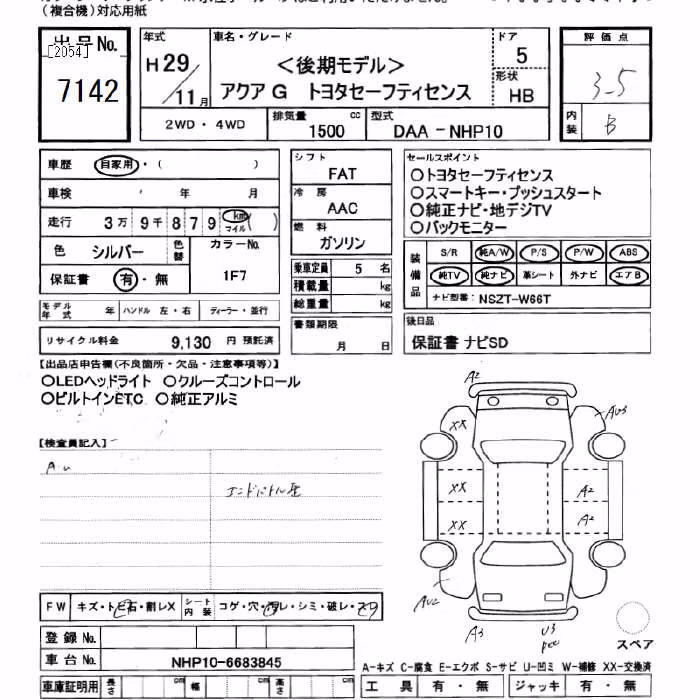 （複合機）対応用紙
出品No.
[2054]
7142
年式
H29
11月
車名・グレード
＜後期モデル＞
アクア G トヨタセーフティセンス
ドア
5
形状
HB
評価点
3.5
内装
B
2WD・4WD
排気量 cc
1500
型式
DAA－NHP10
車歴 自家用・（ ）
車検 年 月
走行 3万9千879 km マイル ( )
色 シルバー 色替
カラーNo.
1F7
保証書 有・無
モデル年式 年 ハンドル 左・右 ディーラー・並行
リサイクル料金 9,130 円 預託済
シフト
FAT
冷房
AAC
燃料
ガソリン
乗車定員 5 名
積載量 kg
総重量 kg
書類期限
月 日
セールスポイント
○トヨタセーフティセンス
○スマートキー・プッシュスタート
○純正ナビ・地デジTV
○バックモニター
装備品
S/R 純A/W P/S P/W ABS
純TV 純ナビ 革シート 外ナビ エアB
ナビ型番： NSZT-W66T
後日品
保証書 ナビSD
【出品店申告欄(不良箇所・欠品・注意事項等)】
○LEDヘッドライト ○クルーズコントロール
○ビルトインETC ○純正アルミ
【検査員記入】
A.u
A2
AU3
XX
XX A2
XX A2
AU2
A3
U3
スペア
FW キズ・トビ石・割レX シート内装 コゲ・穴・汚レ・シミ・破レ・スレ
登録No.
車台No. NHP10-6683845
車庫証明用 長さ cm 幅 cm 高さ cm
A-キズ C-腐食 E-エクボ S-サビ U-凹ミ W-補修 XX-交換
工具 有・無 ジャッキ 有・無